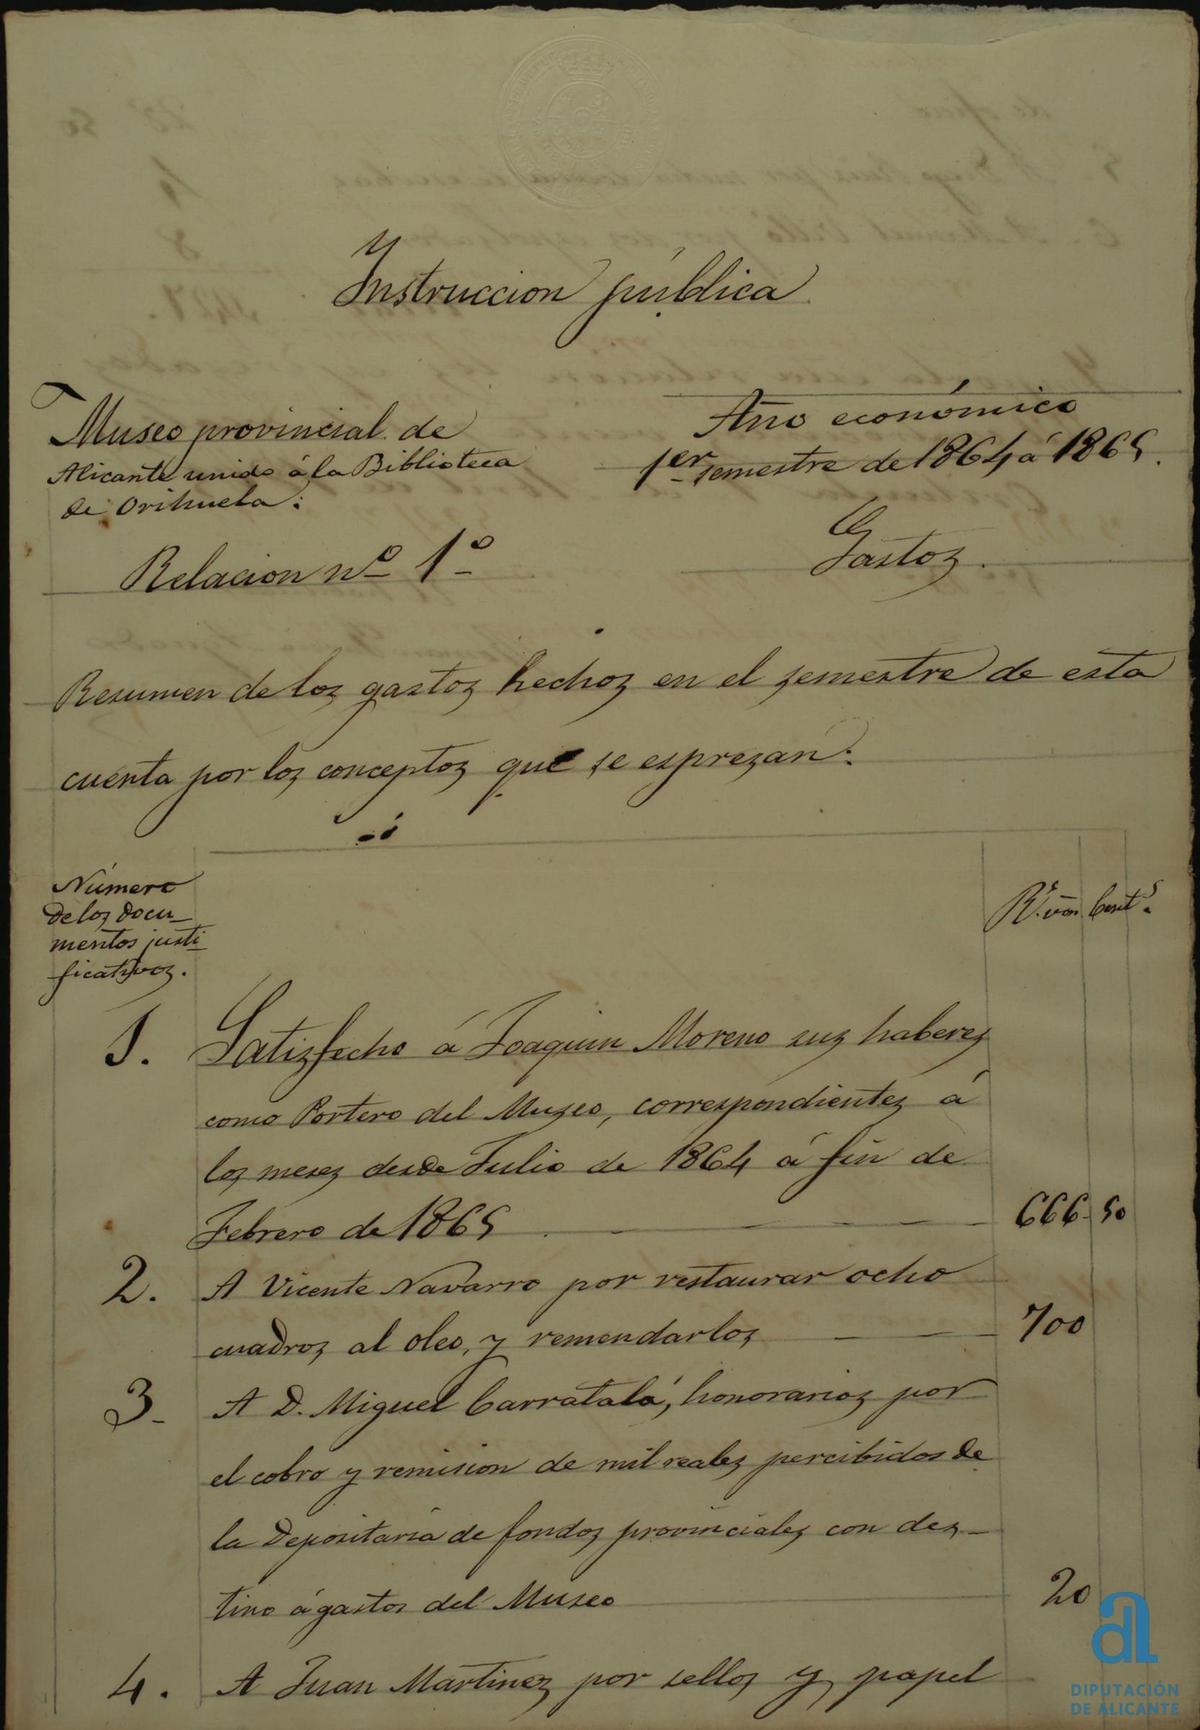 Instruccion pública
Museo provincial de
Alicante unido á la Biblioteca
de Orihuela:
Año económico
1er semestre de 1864 á 1865.
Relacion nº 1º
Gastos.
Resumen de los gastos hechos en el semestre de esta
cuenta por los conceptos que se espresan:
Número
de los docu-
mentos justi-
ficativos.
Rs. von Cents.
1. Satisfecho á Joaquin Moreno sus haberes
como Portero del Museo, correspondientes á
los meses desde Julio de 1864 á fin de
Febrero de 1865 666-50
2. A Vicente Navarro por restaurar ocho
cuadros al oleo, y remendarlos 700
3- A D. Miguel Carratalá, honorarios por
el cobro y remision de mil reales percibidos de
la Depositaría de fondos provinciales con des-
tino á gastos del Museo 20
4. A Juan Martinez por sellos y papel
DIPUTACIÓN
DE ALICANTE